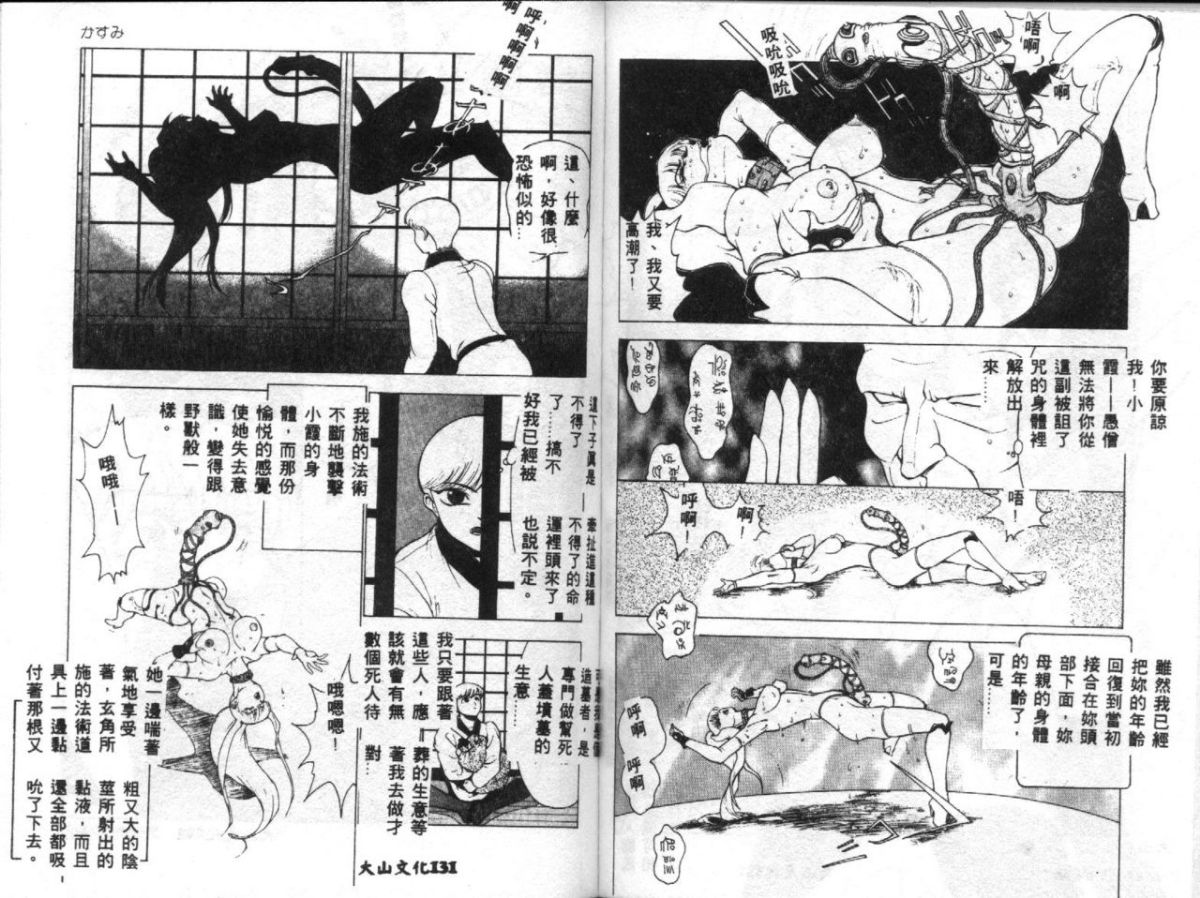 唔
啊
啊
吸吮吸吮
我、我又要
高潮了！
你要原諒
我！小
霞——愚僧
無法將你從
這副被詛了
咒的身體裡
解放出
來…
唔！
啊！
呼啊！
雖然我已經
把妳的年齡
回復到當初
接合在妳頭
部下面，妳
母親的身體
的年齡了，
可是…
呼啊
呼啊
かすみ
呼，
啊啊啊啊
啊
這、什麼
啊，好像很
恐怖似的…
這下子真是
不得了
了……搞不
好我已經被
牽扯進這種
不得了的命
運裡頭來了
也說不定。
造墓者，是
專門做幫死
人蓋墳墓的
生意……
我只要跟著
這些人，應
該就會有無
數個死人待
葬的生意等
著我去做才
對…
我施的法術
不斷地襲擊
小霞的身
體，而那份
愉悅的感覺
使她失去意
識，變得跟
野獸般一
樣。
哦哦——
哦嗯嗯！
她一邊喘著
氣地享受
著，玄角所
施的法術道
具上一邊黏
付著那根又
粗又大的陰
莖所射出的
黏液，而且
還全部都吸
吮了下去。
大山文化131